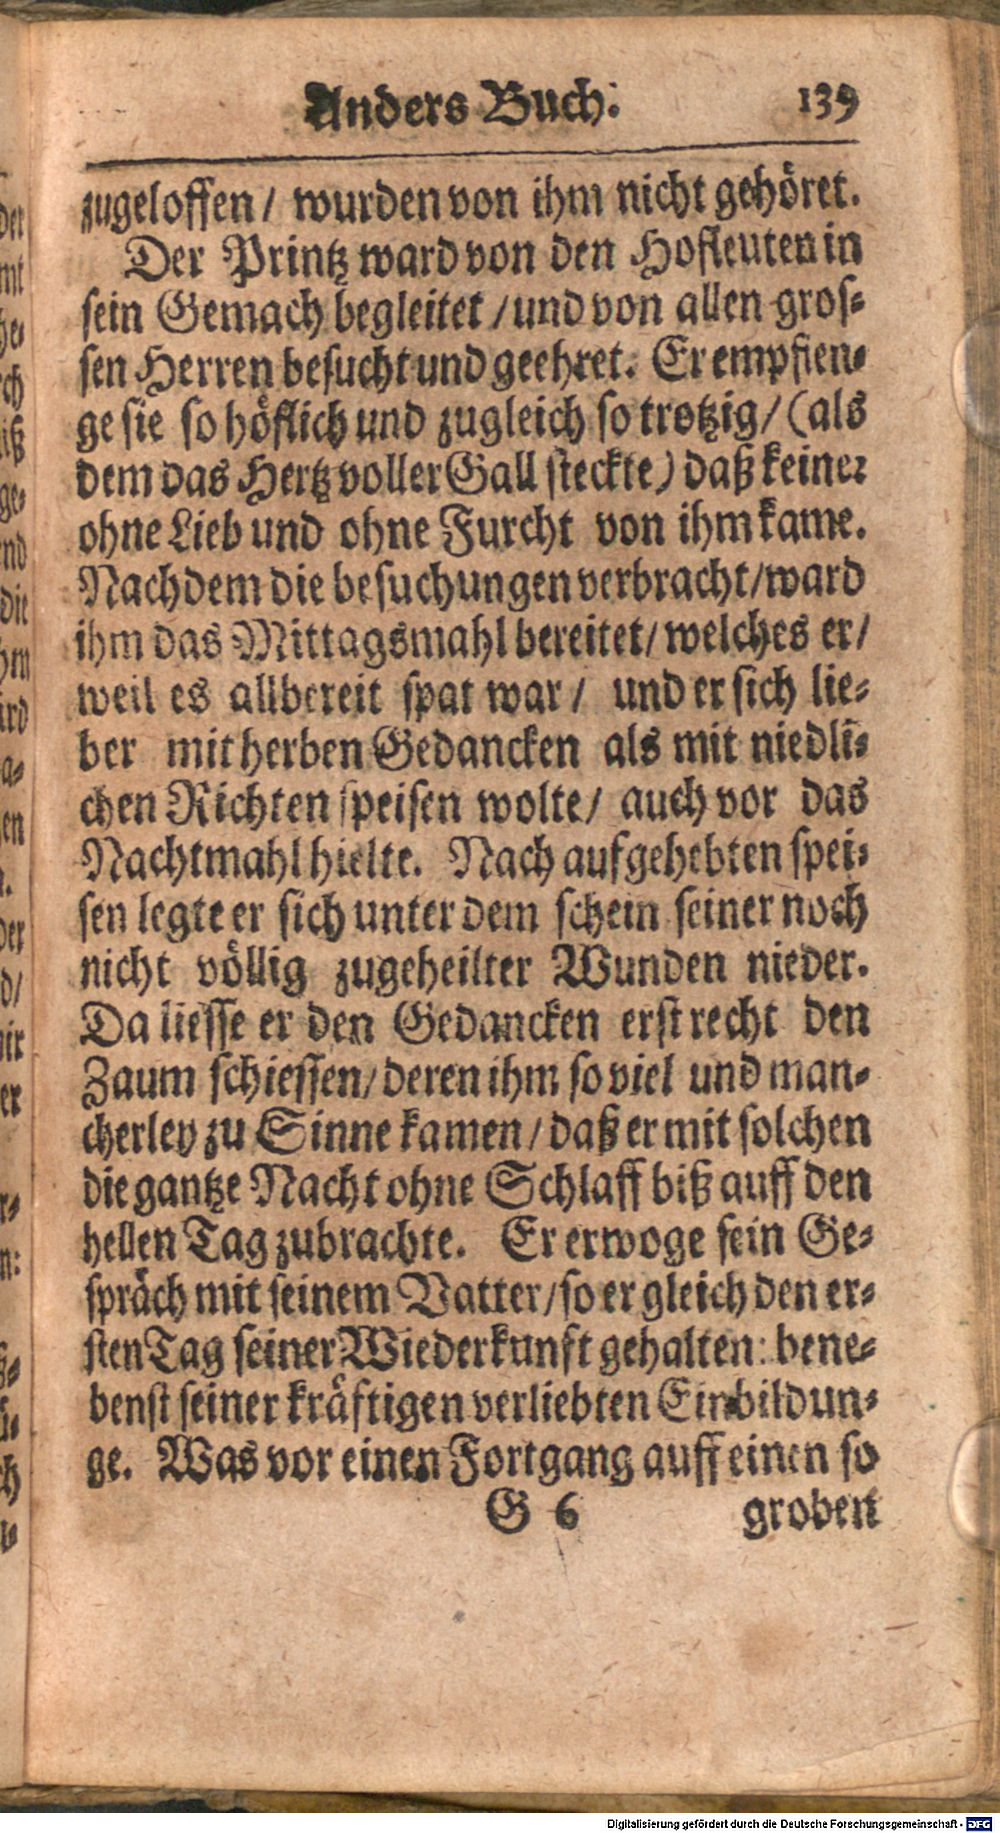 Anders Buch. 139
zugeloffen / wurden von ihm nicht gehöret.
Der Printz ward von den Hofleuten in
sein Gemach begleitet / und von allen gros-
sen Herren besucht und geehret. Er empfien-
ge sie so höflich und zugleich so trotzig / (als
dem das Hertz voller Gall steckte) daß keiner
ohne Lieb und ohne Furcht von ihm kame.
Nachdem die besuchungen verbracht / ward
ihm das Mittagsmahl bereitet / welches er /
weil es allbereit spat war / und er sich lie-
ber mit herben Gedancken als mit niedli-
chen Richten speisen wolte / auch vor das
Nachtmahl hielte. Nach aufgehebten spei-
sen legte er sich unter dem schein seiner noch
nicht völlig zugeheilter Wunden nieder.
Da liesse er den Gedancken erst recht den
Zaum schiessen / deren ihm so viel und man-
cherley zu Sinne kamen / daß er mit solchen
die gantze Nacht ohne Schlaff biß auff den
hellen Tag zubrachte. Er erwoge sein Ge-
spräch mit seinem Vatter / so er gleich den er-
sten Tag seiner Wiederkunft gehalten: bene-
benst seiner kräftigen verliebten Einbildun-
ge. Was vor einen Fortgang auff einen so
G 6 groben
Digitalisierung gefördert durch die Deutsche Forschungsgemeinschaft - DFG